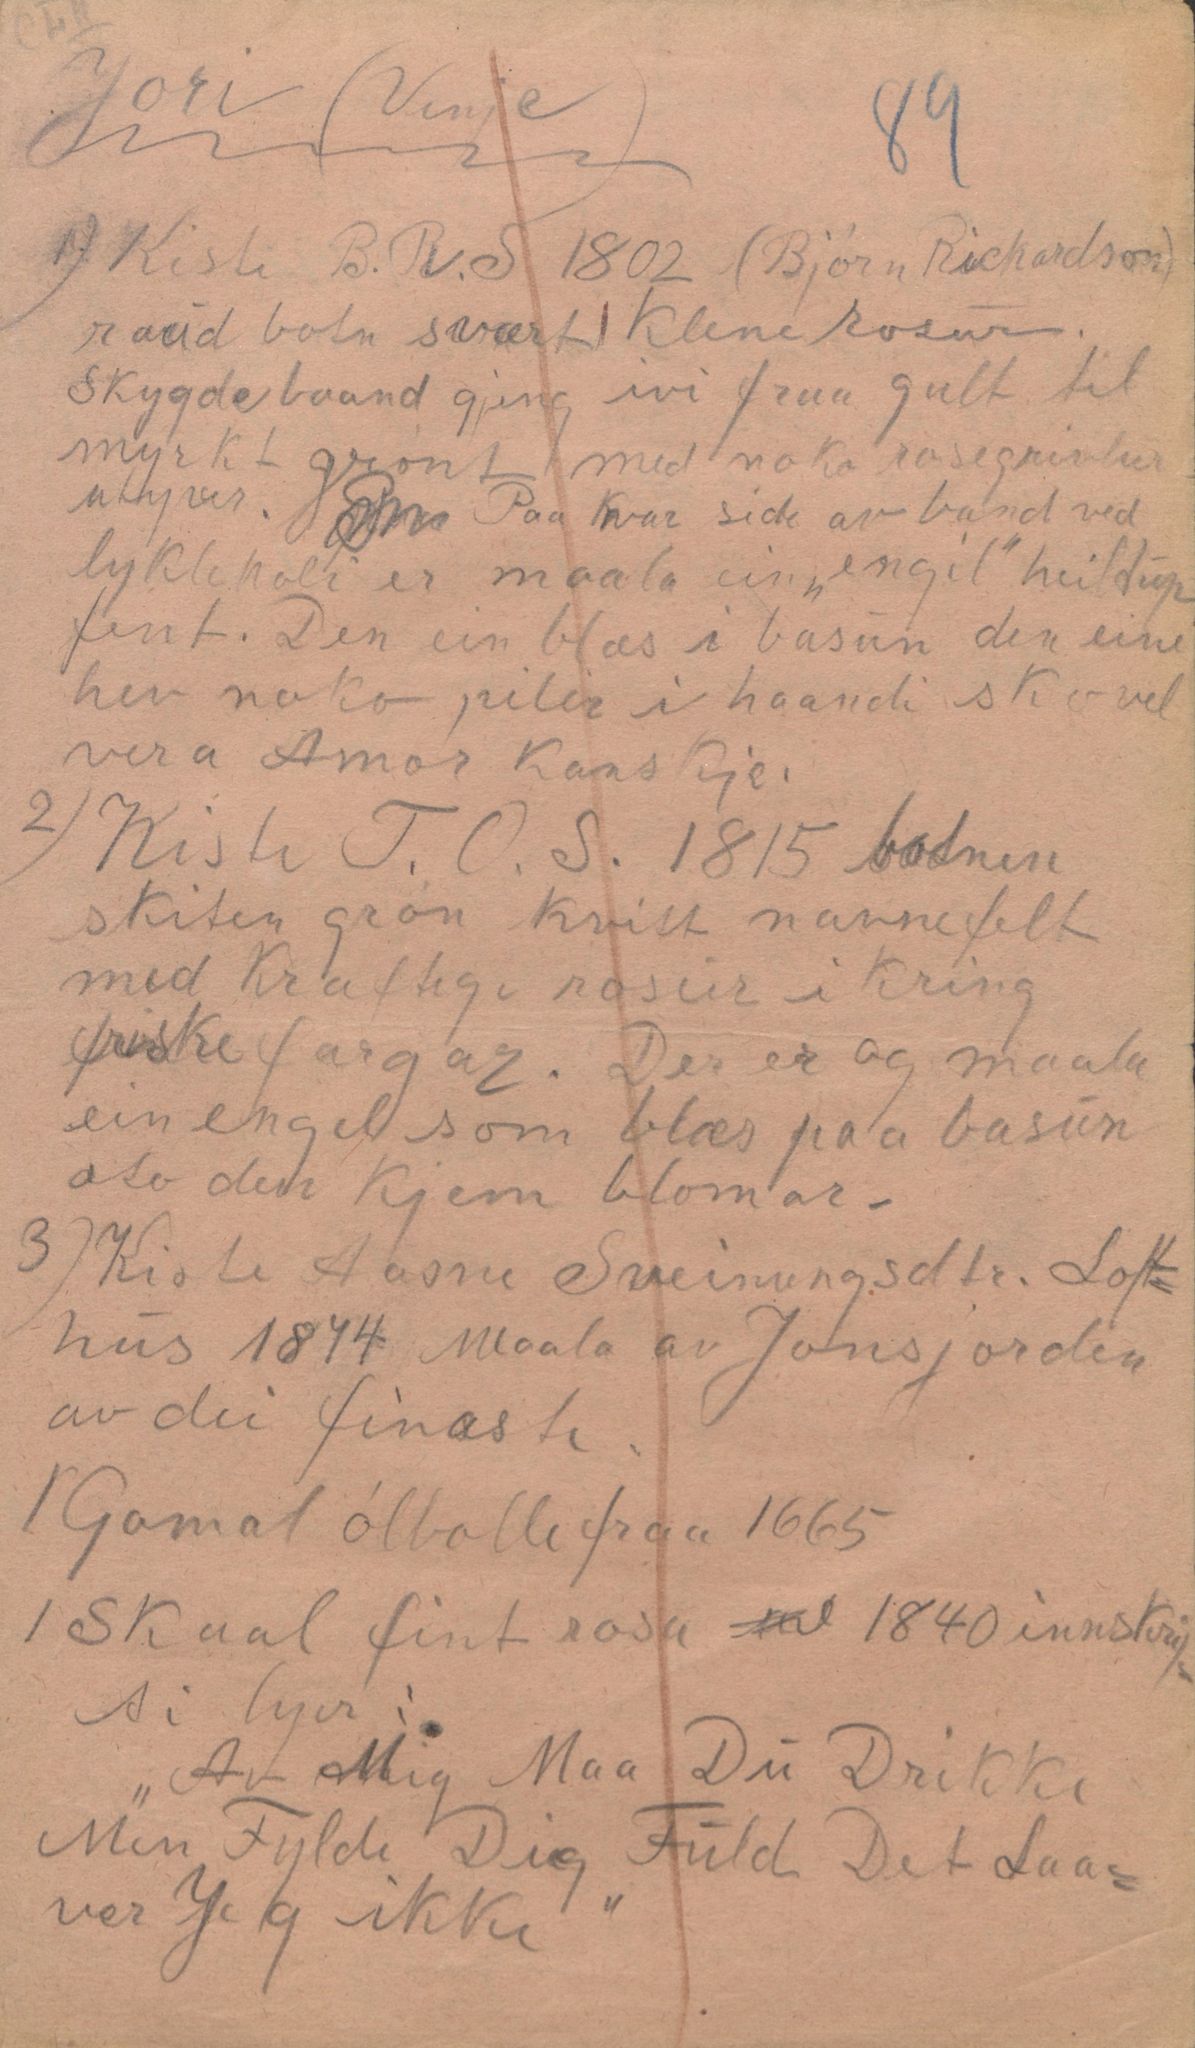 Jori (Vinje)
89
1) Kiste B.R.S 1802 (Björn Rickardson)
raud botn svært klene rosur.
Skygdebaand gjeng ivi fraa gult til
myrkt grönt med noko rosegreivlur
utyver. Paa kvar side av band ved
lykleholi er maala ein „engil" heilt up
fent. Den ein blæs i basun den eine
hev noko pilir i haandi sko vel
vera Amor kanskje.
2) Kiste T. O. S. 1815 botnen
skiten grön kvitt navnefelt
med kraftige rosur i kring
friske fargar. Der er og maala
ein engel som blæs paa basun
oto den kjem blomar -
3) Kiste Aasne Sveinungsdtr. Loft=
hus 1844 Maala av Jonsjorden
av dei finaste.
1 Gamal ölbolle fraa 1665
1 Skaal fint rosa 1840 innskrif=
ti lyer:
„Av Mig Maa Du Drikke
Men Fylde Dig Fuld Det Laa=
ver Jeg ikke"